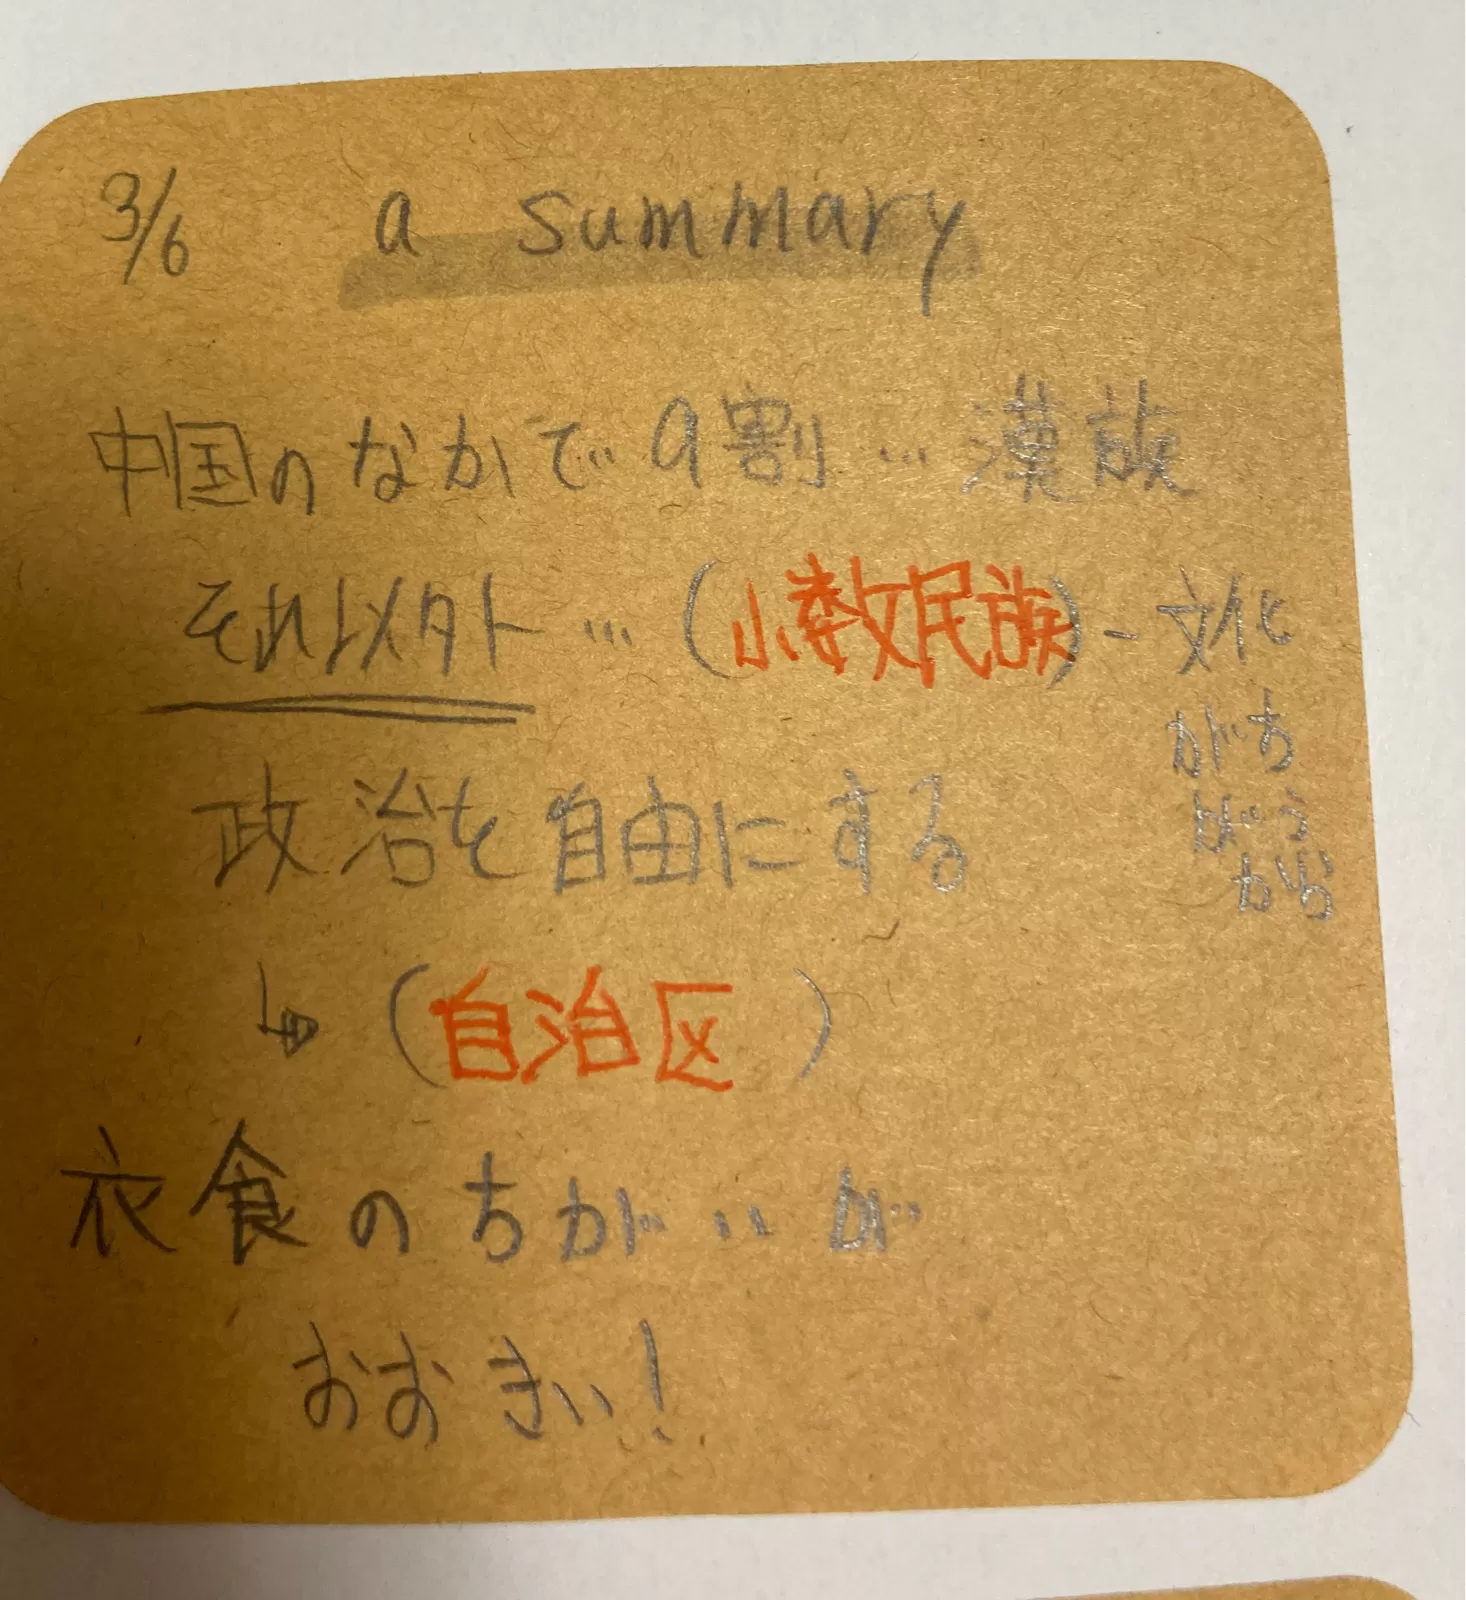 3/6 a summary
中国のなかで9割…漢族
それ以外…(小数民族)-文化
がち
がう
から
政治を自由にする
↳(自治区)
衣食のちがいが
おおきい!